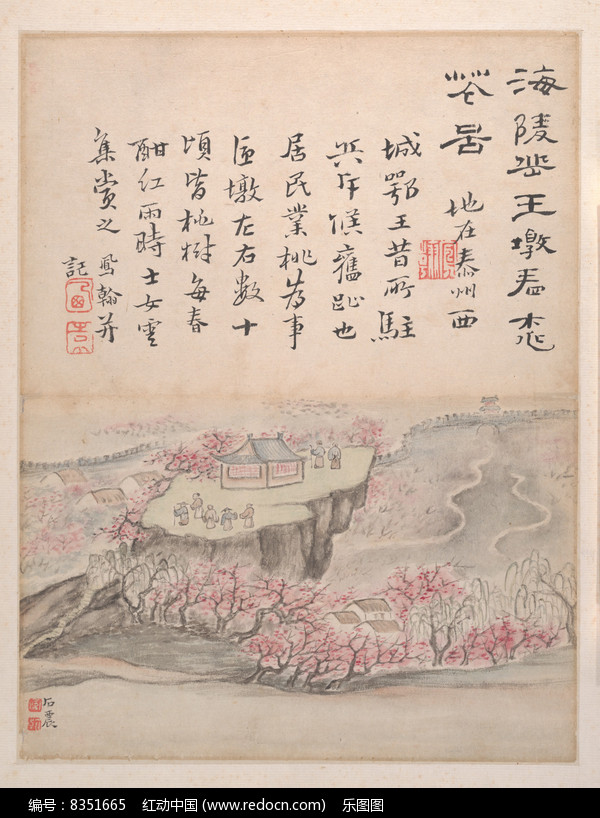 海陵岳王墩看桃
花啚 地在泰州西
城鄂王昔所駐
兵斥候舊趾也
居民業桃為事
匝墩左右數十
頃皆桃樹每春
酣红雨時士女雲
集賞之 鳳翰并
記
石震
编号：8351665 红动中国 (www.redocn.com) 乐图图